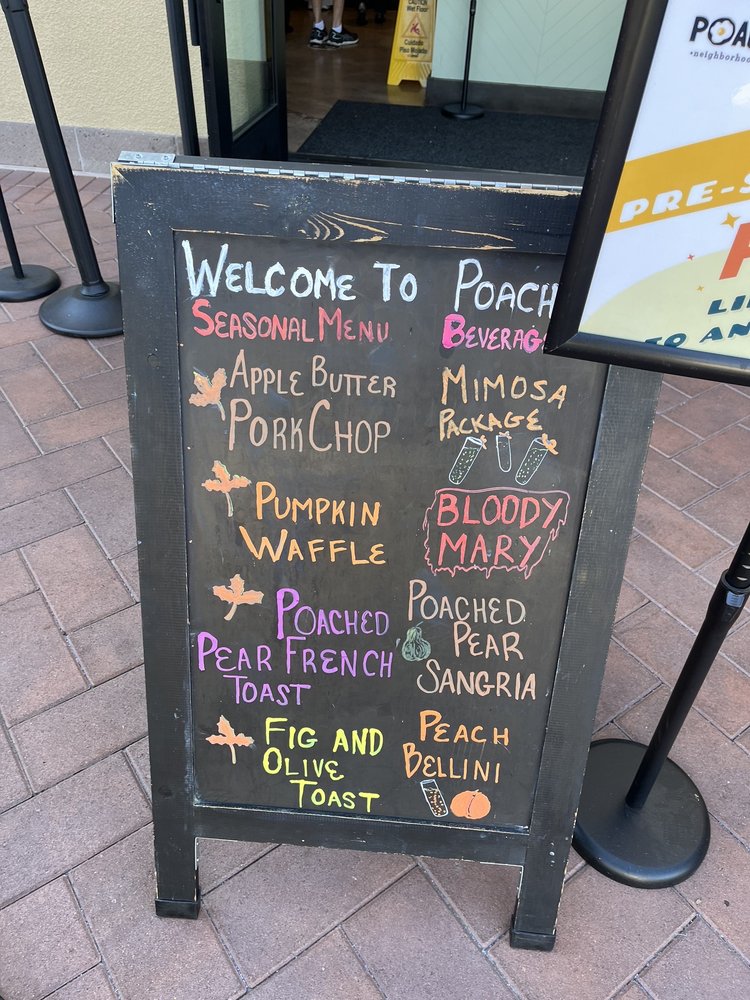 CAUTION
Wet Floor
Cuidado
Piso Mojado
WELCOME TO POACH
SEASONAL MENU
APPLE BUTTER
PORK CHOP
PUMPKIN
WAFFLE
POACHED
PEAR FRENCH
TOAST
FIG AND
OLIVE
TOAST
BEVERAG
MIMOSA
PACKAGE
BLOODY
MARY
POACHED
PEAR
SANGRIA
PEACH
BELLINI
POA
•neighborhoo
PRE-S
LI
TO AN